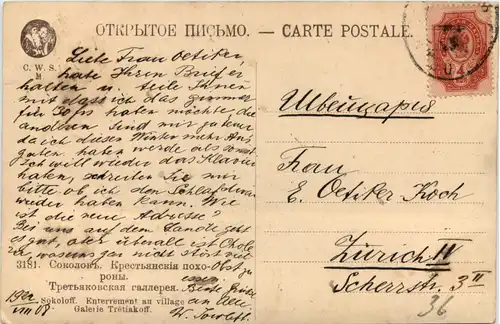 ОТКРЫТОЕ ПИСЬМО. — CARTE POSTALE.
C. W. S.
M
Liebe Frau Oetiker,
habe Ihren Brief er
halten u teile Ihnen
mit dass ich das Zimmer
für 50 frs haben möchte, die
anderen sind mir zu teuer
da ich diesen Winter mehr Aus
gaben haben werde als sonst.
Ich will wieder das Klavier
haben, schreiben Sie mir
bitte ob ich den Schlafdivan
wieder haben kann. Wie
ist die neue Adresse?
Bei uns auf dem Lande geht
es gut, aber überall ist Chole
ra, wenigstens nicht
Obst zu
essen.
Beste Grüsse
an alle
W.
3181. Соколовъ. Крестьянскія похо-
роны.
Третьяковская галлерея.
Sokoloff. Enterrement au village
Galerie Trétiakoff.
VIII 08
Швейцарія
Frau
E. Oetiker-Koch
Zürich IV
Scherrstr. 3 II
36